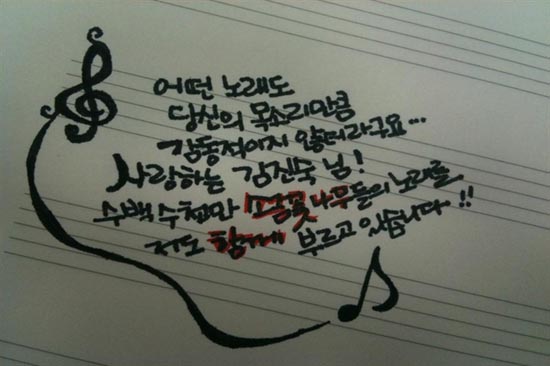 어떤 노래도
당신의 목소리만큼
감동적이지 않더라구요...
사랑하는 김진숙 님!
수백 수천만 소금꽃 나무들의 노래를,
저도 함께 부르고 있습니다..!!